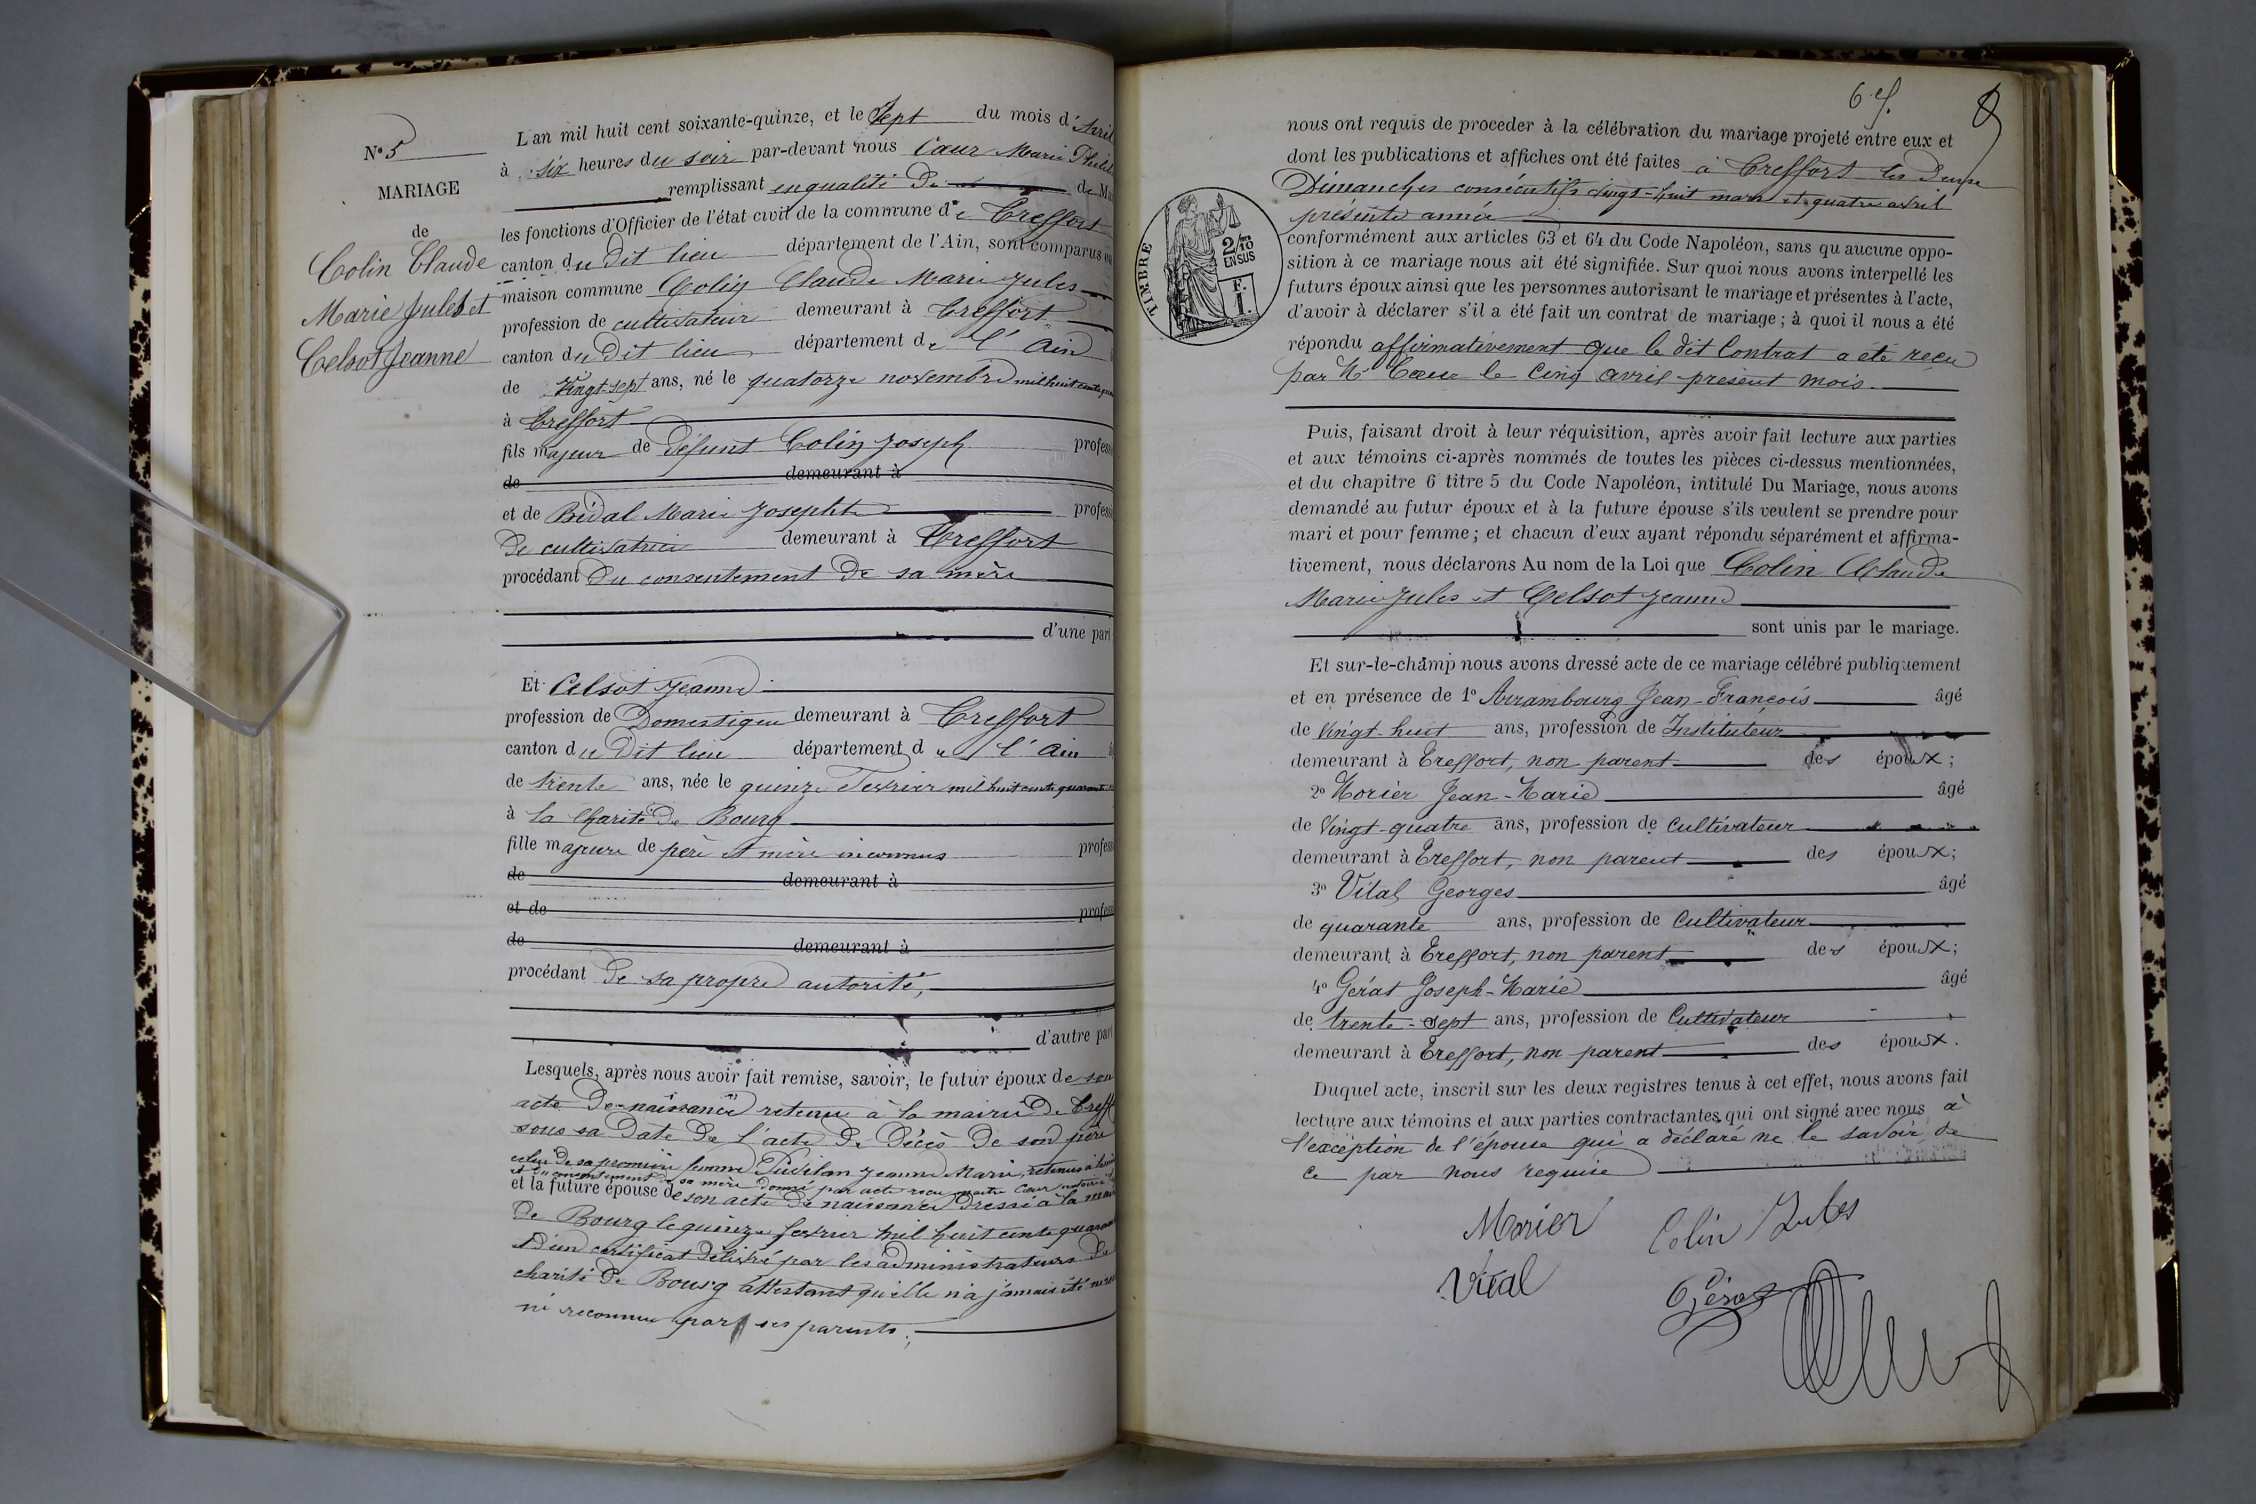 N° 5
MARIAGE
de
Colin Claude
Marie Jules et
Celsot Jeanne
L'an mil huit cent soixante-quinze, et le Sept du mois d'Avril
à six heures du soir par-devant nous Cœur Marie
remplissant en qualité de de
les fonctions d'Officier de l'état civil de la commune de Treffort
canton du dit lieu département de l'Ain, sont comparus
maison commune Colin Claude Marie Jules
profession de cultivateur demeurant à Treffort
canton du dit lieu département de l'Ain
de vingt-sept ans, né le quatorze novembre mil huit cent
à Treffort
fils majeur de défunt Colin Joseph profess
de demeurant à
et de Bidal Marie Josephte profess
de cultivatrice demeurant à Treffort
procédant du consentement de sa mère
d'une part
Et Celsot Jeanne
profession de Domestique demeurant à Treffort
canton du dit lieu département de l'Ain
de trente ans, née le quinze Fevrier mil huit cent quarante
à la Charité de Bourg
fille majeure de père et mère inconnus profess
de demeurant à
et de profess
de demeurant à
procédant de sa propre autorité,
d'autre part
Lesquels, après nous avoir fait remise, savoir, le futur époux de son
acte de naissance retenu à la mairie de Treff
sous sa date de l'acte de décès de son père
celui de sa première femme Jeanne Marie, retenus à
et du consentement de sa mère donné par acte reçu maitre Cœur notaire
et la future épouse de son acte de naissance dressé à la
de Bourg le quinze fevrier mil huit cent
d'un certificat délivré par les administrateurs de
charité de Bourg attestant qu'elle n'a jamais été
ni reconnue par ses parents;
6 ef.
nous ont requis de proceder à la célébration du mariage projeté entre eux et
dont les publications et affiches ont été faites à Treffort les deux
Dimanches consécutifs vingt-huit mars et quatre avril
présente année
TIMBRE
2/10
EN SUS
F.
1.
conformément aux articles 63 et 64 du Code Napoléon, sans qu'aucune oppo-
sition à ce mariage nous ait été signifiée. Sur quoi nous avons interpellé les
futurs époux ainsi que les personnes autorisant le mariage et présentes à l'acte,
d'avoir à déclarer s'il a été fait un contrat de mariage; à quoi il nous a été
répondu affirmativement que le dit Contrat a été reçu
par Me Cœur le cinq avril présent mois.
Puis, faisant droit à leur réquisition, après avoir fait lecture aux parties
et aux témoins ci-après nommés de toutes les pièces ci-dessus mentionnées,
et du chapitre 6 titre 5 du Code Napoléon, intitulé Du Mariage, nous avons
demandé au futur époux et à la future épouse s'ils veulent se prendre pour
mari et pour femme; et chacun d'eux ayant répondu séparément et affirma-
tivement, nous déclarons Au nom de la Loi que Colin Claude
Marie Jules et Celsot Jeanne
sont unis par le mariage.
Et sur-le-champ nous avons dressé acte de ce mariage célébré publiquement
et en présence de 1° Arrambourg Jean-François âgé
de Vingt-huit ans, profession de Instituteur
demeurant à Treffort, non parent des époux;
2° Morier Jean-Marie âgé
de Vingt-quatre ans, profession de Cultivateur
demeurant à Treffort, non parent des époux;
3° Vital Georges âgé
de quarante ans, profession de Cultivateur
demeurant à Treffort, non parent des époux;
4° Gérat Joseph-Marie âgé
de trente-sept ans, profession de Cultivateur
demeurant à Treffort, non parent des époux.
Duquel acte, inscrit sur les deux registres tenus à cet effet, nous avons fait
lecture aux témoins et aux parties contractantes qui ont signé avec nous à
l'exception de l'épouse qui a déclaré ne le savoir de
ce par nous requise
Morier Colin Jules
Vital Gérat